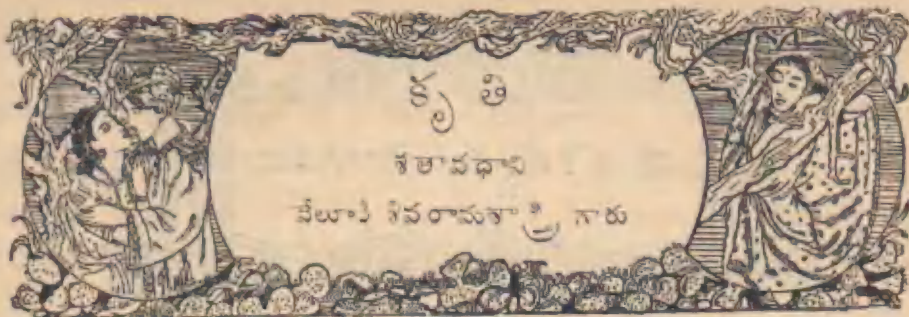 కృతి
శతావధాని
వేలూరి శివరామశాస్త్రి గారు